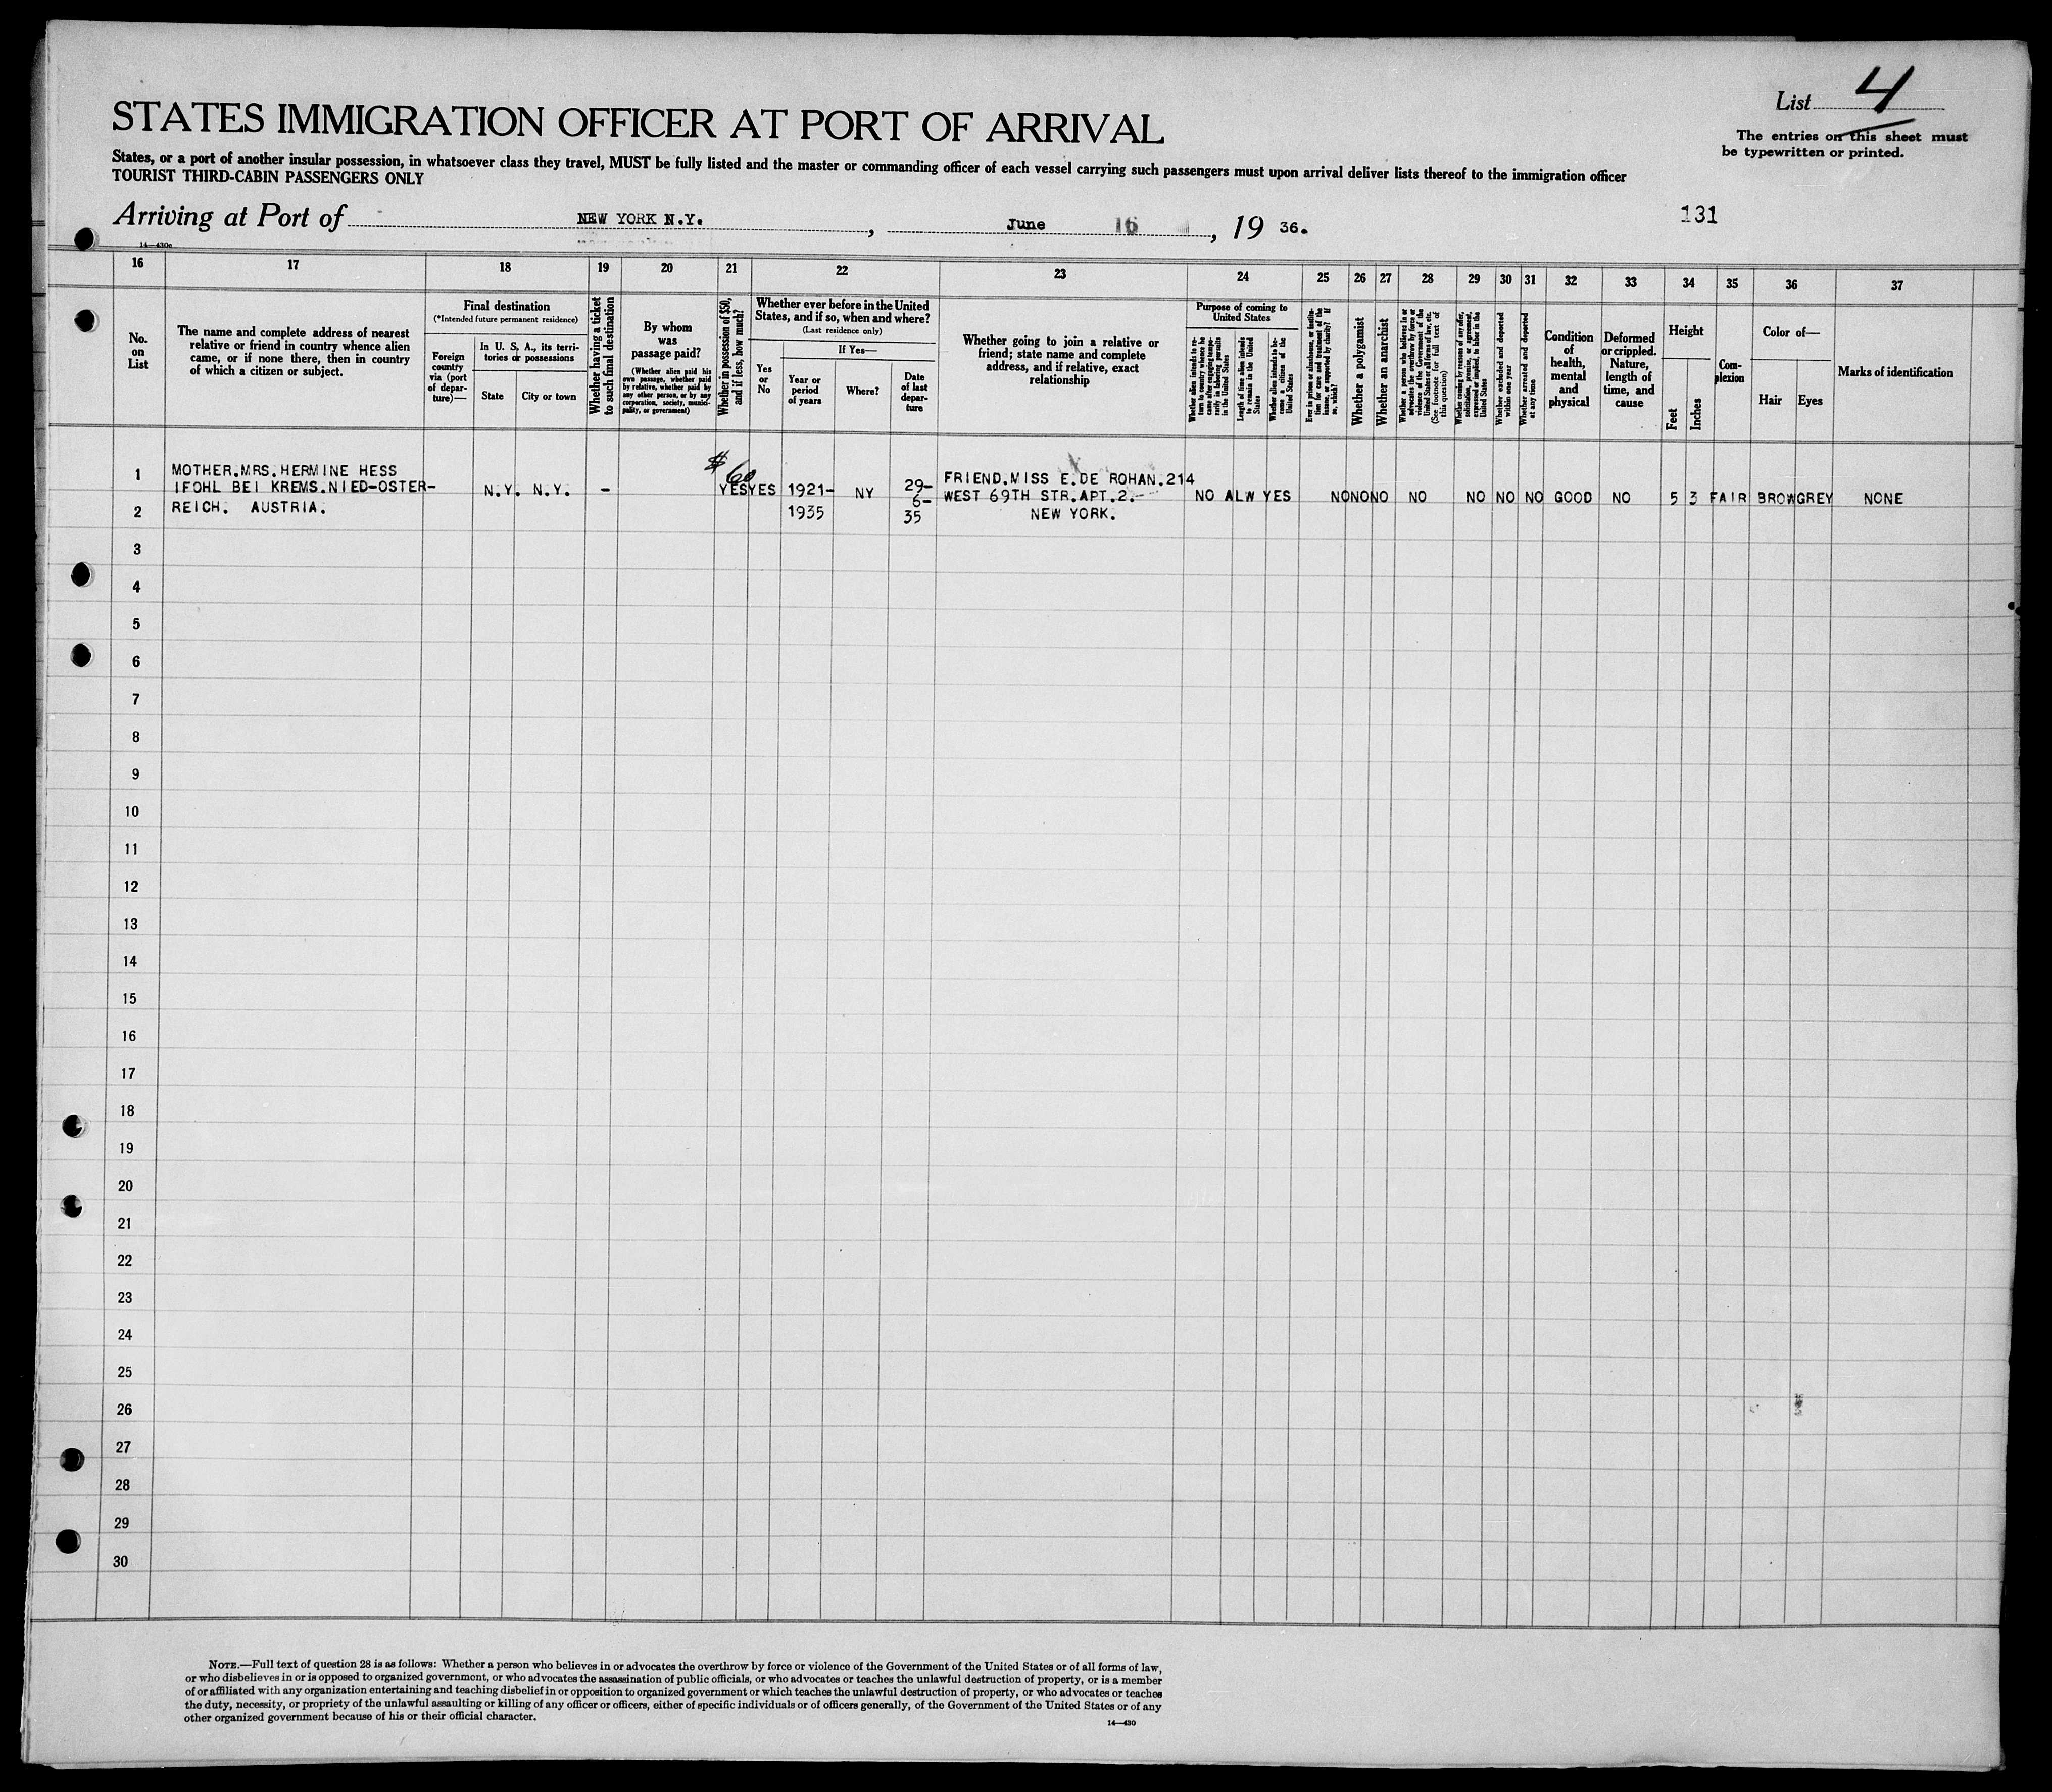 List 4
The entries on this sheet must
be typewritten or printed.
STATES IMMIGRATION OFFICER AT PORT OF ARRIVAL
States, or a port of another insular possession, in whatsoever class they travel, MUST be fully listed and the master or commanding officer of each vessel carrying such passengers must upon arrival deliver lists thereof to the immigration officer
TOURIST THIRD-CABIN PASSENGERS ONLY
Arriving at Port of NEW YORK N.Y., June 16, 19 36.
131
14—430c
16 17 18 19 20 21 22 23 24 25 26 27 28 29 30 31 32 33 34 35 36 37
No.
on
List
The name and complete address of nearest
relative or friend in country whence alien
came, or if none there, then in country
of which a citizen or subject.
Final destination
(*Intended future permanent residence)
Foreign
country
via (port
of depar-
ture)—
In U. S. A., its terri-
tories or possessions
State
City or town
Whether having a ticket
to such final destination
By whom
was
passage paid?
(Whether alien paid his
own passage, whether paid
by relative, whether paid by
any other person, or by any
corporation, society, munici-
pality, or government)
Whether in possession of $50,
and if less, how much?
Whether ever before in the United
States, and if so, when and where?
(Last residence only)
Yes
or
No
If Yes—
Year or
period
of years
Where?
Date
of last
depar-
ture
Whether going to join a relative or
friend; state name and complete
address, and if relative, exact
relationship
Purpose of coming to
United States
Whether alien intends to re-
turn to country whence he
came after engaging tempo-
rarily in laboring pursuits
in the United States
Length of time alien intends
to remain in the United
States
Whether alien intends to be-
come a citizen of the
United States
Ever in prison or almshouse, or institu-
tion for care and treatment of the
insane, or supported by charity? If
so, which?
Whether a polygamist
Whether an anarchist
Whether a person who believes in or
advocates the overthrow by force or
violence of the Government of the
United States or all forms of law, etc.
(See footnote for full text of
this question)
Whether coming by reason of any offer,
solicitation, promise, or agreement,
expressed or implied, to labor in the
United States
Whether excluded and deported
within one year
Whether arrested and deported
at any time
Condition
of
health,
mental
and
physical
Deformed
or crippled.
Nature,
length of
time, and
cause
Height
Feet
Inches
Com-
plexion
Color of—
Hair
Eyes
Marks of identification
1 MOTHER.MRS.HERMINE HESS $ 60 FRIEND.MISS E.DE ROHAN.214
IFOHL BEI KREMS.NIED-OSTER- N.Y. N.Y. - YES YES 1921- NY 29-6- WEST 69TH STR.APT.2. NO ALW YES NO NO NO NO NO NO NO GOOD NO 5 3 FAIR BROW GREY NONE
2 REICH. AUSTRIA. 1935 35 NEW YORK.
3
4
5
6
7
8
9
10
11
12
13
14
15
16
17
18
19
20
21
22
23
24
25
26
27
28
29
30
NOTE.—Full text of question 28 is as follows: Whether a person who believes in or advocates the overthrow by force or violence of the Government of the United States or of all forms of law,
or who disbelieves in or is opposed to organized government, or who advocates the assassination of public officials, or who advocates or teaches the unlawful destruction of property, or is a member
of or affiliated with any organization entertaining and teaching disbelief in or opposition to organized government or which teaches the unlawful destruction of property, or who advocates or teaches
the duty, necessity, or propriety of the unlawful assaulting or killing of any officer or officers, either of specific individuals or of officers generally, of the Government of the United States or of any
other organized government because of his or their official character.
14—430